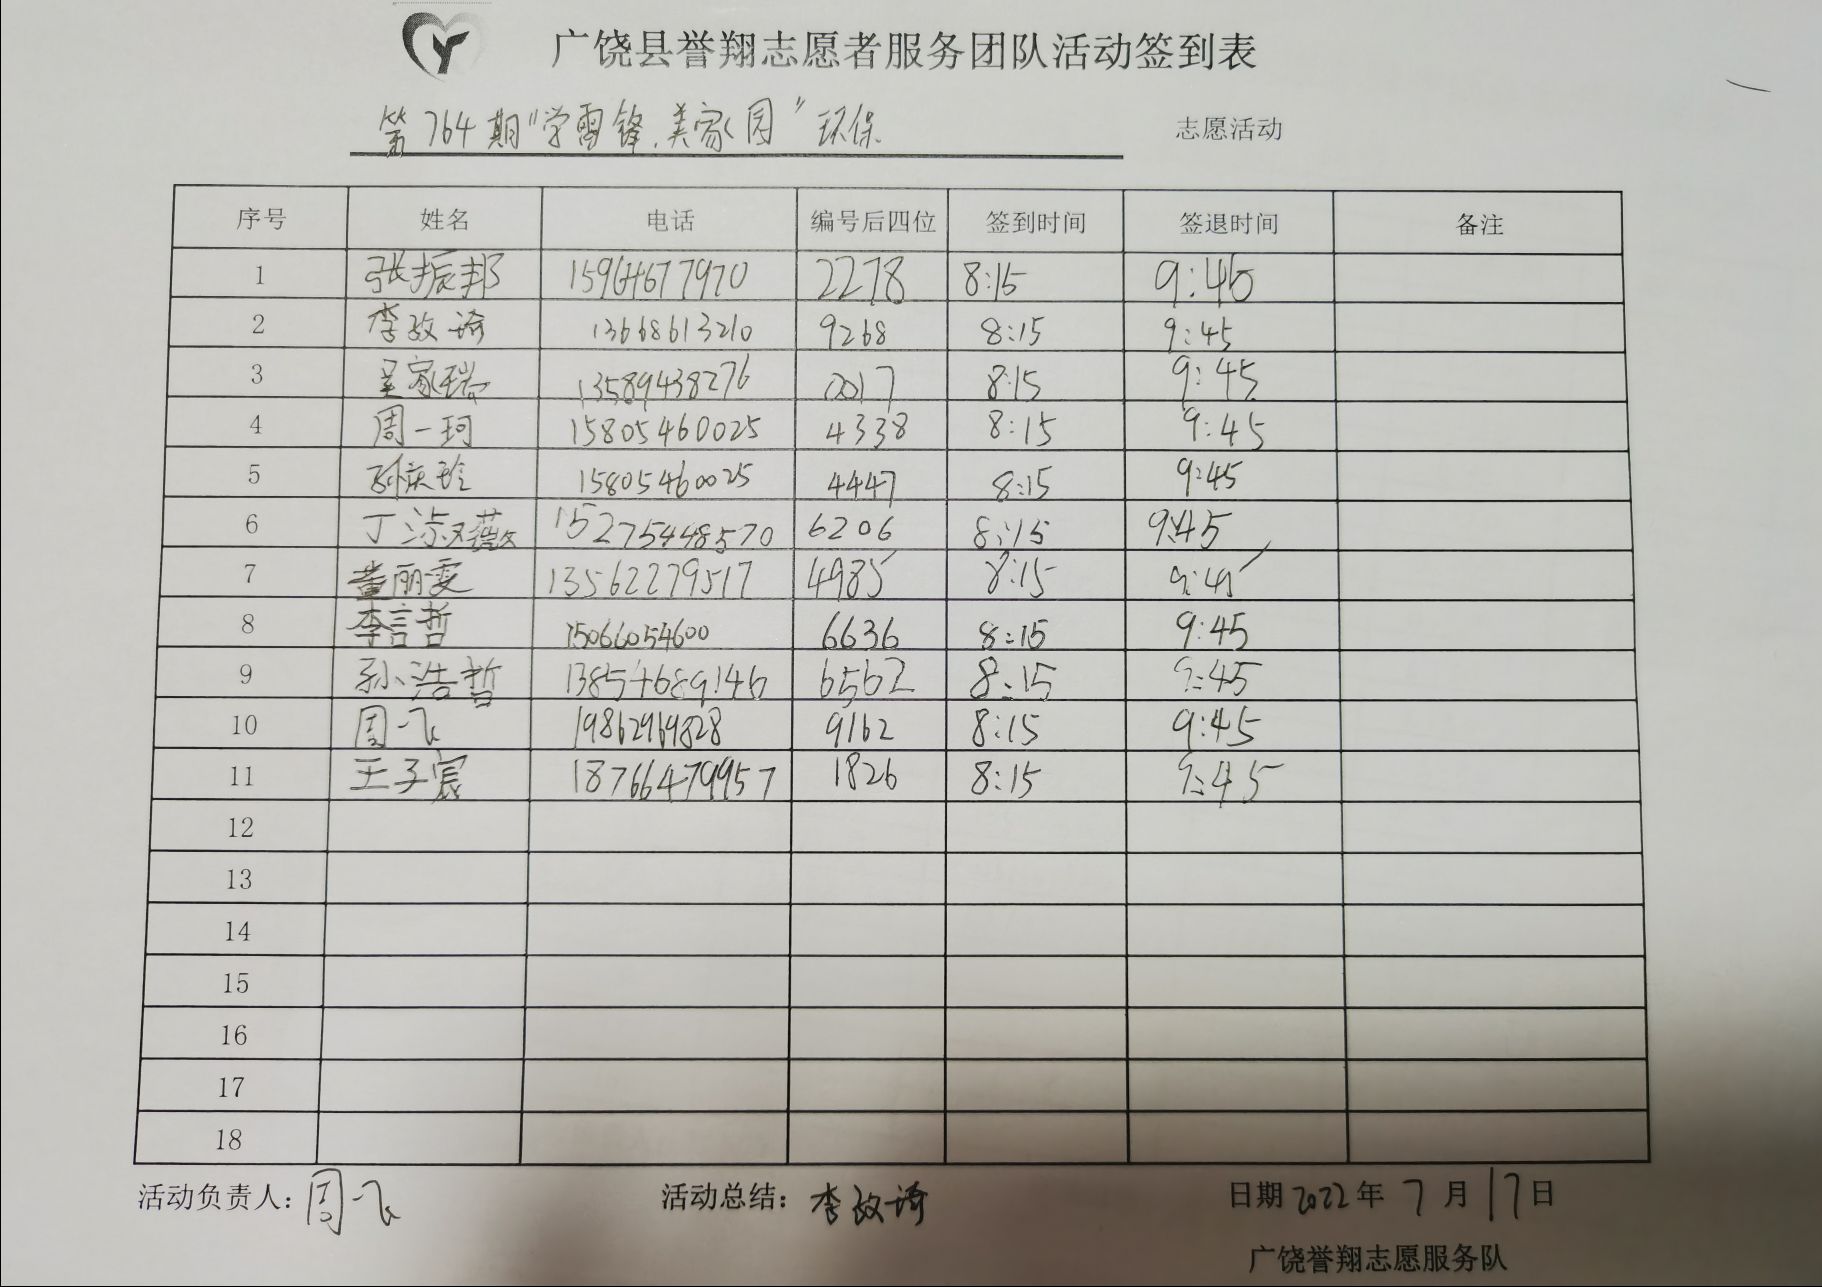 广饶县誉翔志愿者服务团队活动签到表
第764期"学雷锋.美家园"环保 志愿活动
序号 姓名 电话 编号后四位 签到时间 签退时间 备注
1 张振邦 15964677970 2278 8:15 9:45
2 李政 13668613210 9268 8:15 9:45
3 吴家瑞 13589438276 0017 8:15 9:45
4 周一珂 15805460025 4338 8:15 9:45
5 孙庆玲 15805460025 4447 8:15 9:45
6 丁 15275448570 6206 8:15 9:45
7 董丽雯 13562279517 4985 8:15 9:45
8 李言哲 15066054600 6636 8:15 9:45
9 孙浩哲 13854689146 6562 8:15 9:45
10 周一飞 19862969828 9162 8:15 9:45
11 王子宸 18766479957 1826 8:15 9:45
12
13
14
15
16
17
18
活动负责人：周一飞 活动总结：李政 日期2022年7月17日
广饶誉翔志愿服务队